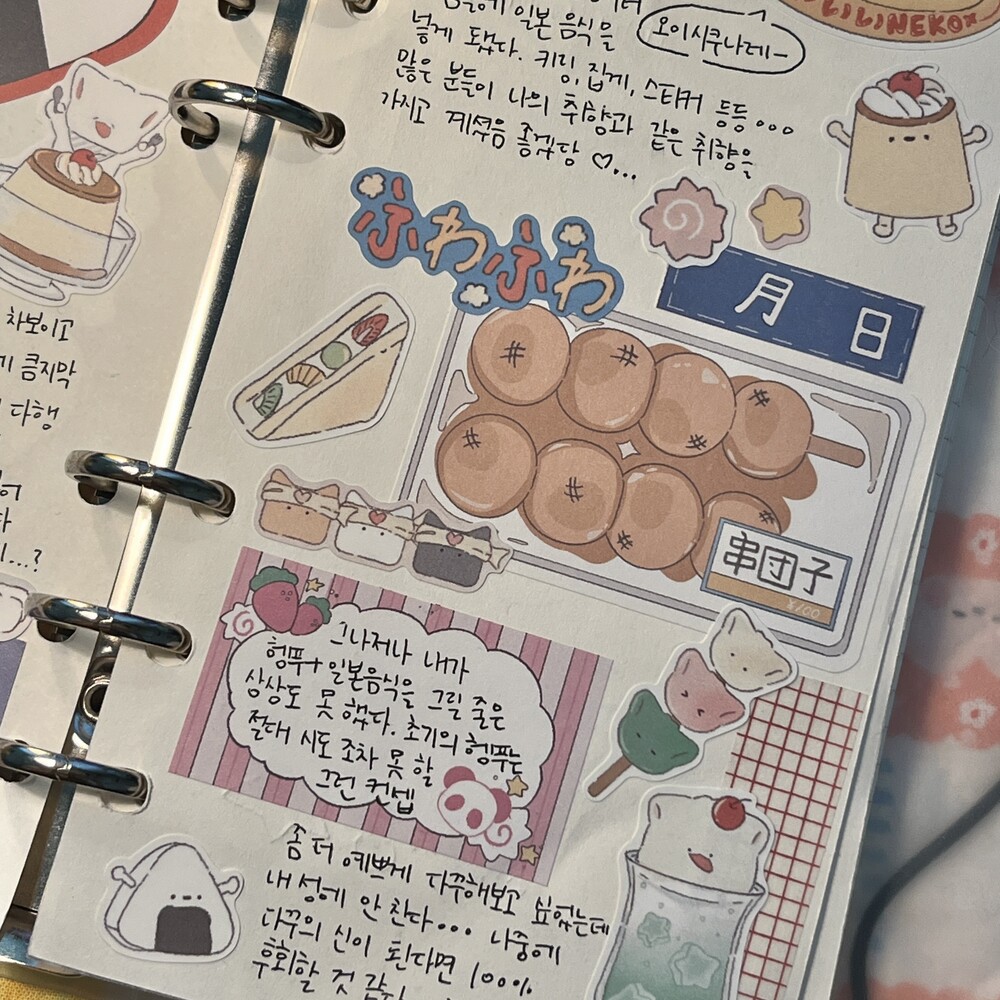 일본 음식을
오이시쿠나레~
넣게 됐다. 키링, 집게, 스티커 등등...
많은 분들이 나의 취향과 같은 취향을
가지고 계셨음 좋겠당 ♡...
NEKO
ふわふわ
月 日
串団子
차보이고
큼지막
다행
...?
그나저나 내가
헹푸가 일본음식을 그릴 줄은
상상도 못 했다. 초기의 헹푸는
절대 시도 조차 못 할
그런 컨셉
좀 더 예쁘게 다꾸해보고 싶었는데
내 성에 안 찬다... 나중에
다꾸의 신이 된다면 100%
후회할 것